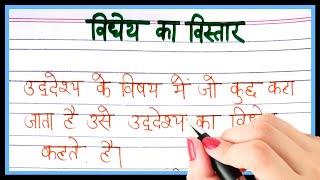 विधेय का विस्तार
उद्देश्य के विषय में जो कुछ कहा
जाता है उसे उद्देश्य का
कहते है।